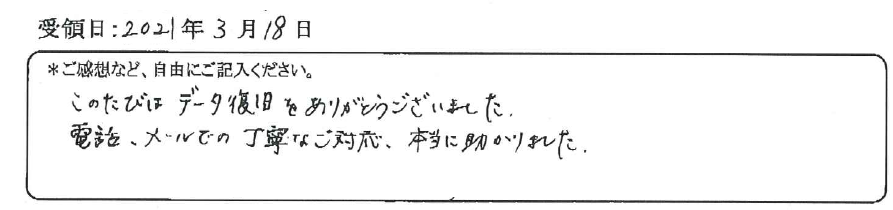 受領日:2021年3月18日
*ご感想など、自由にご記入ください。
このたびはデータ復旧をありがとうございました.
電話、メールでの丁寧なご対応、本当に助かりました.